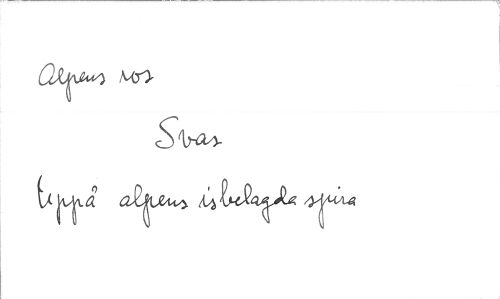 Alpens ros
Svas
Uppå alpens isbelagda spira